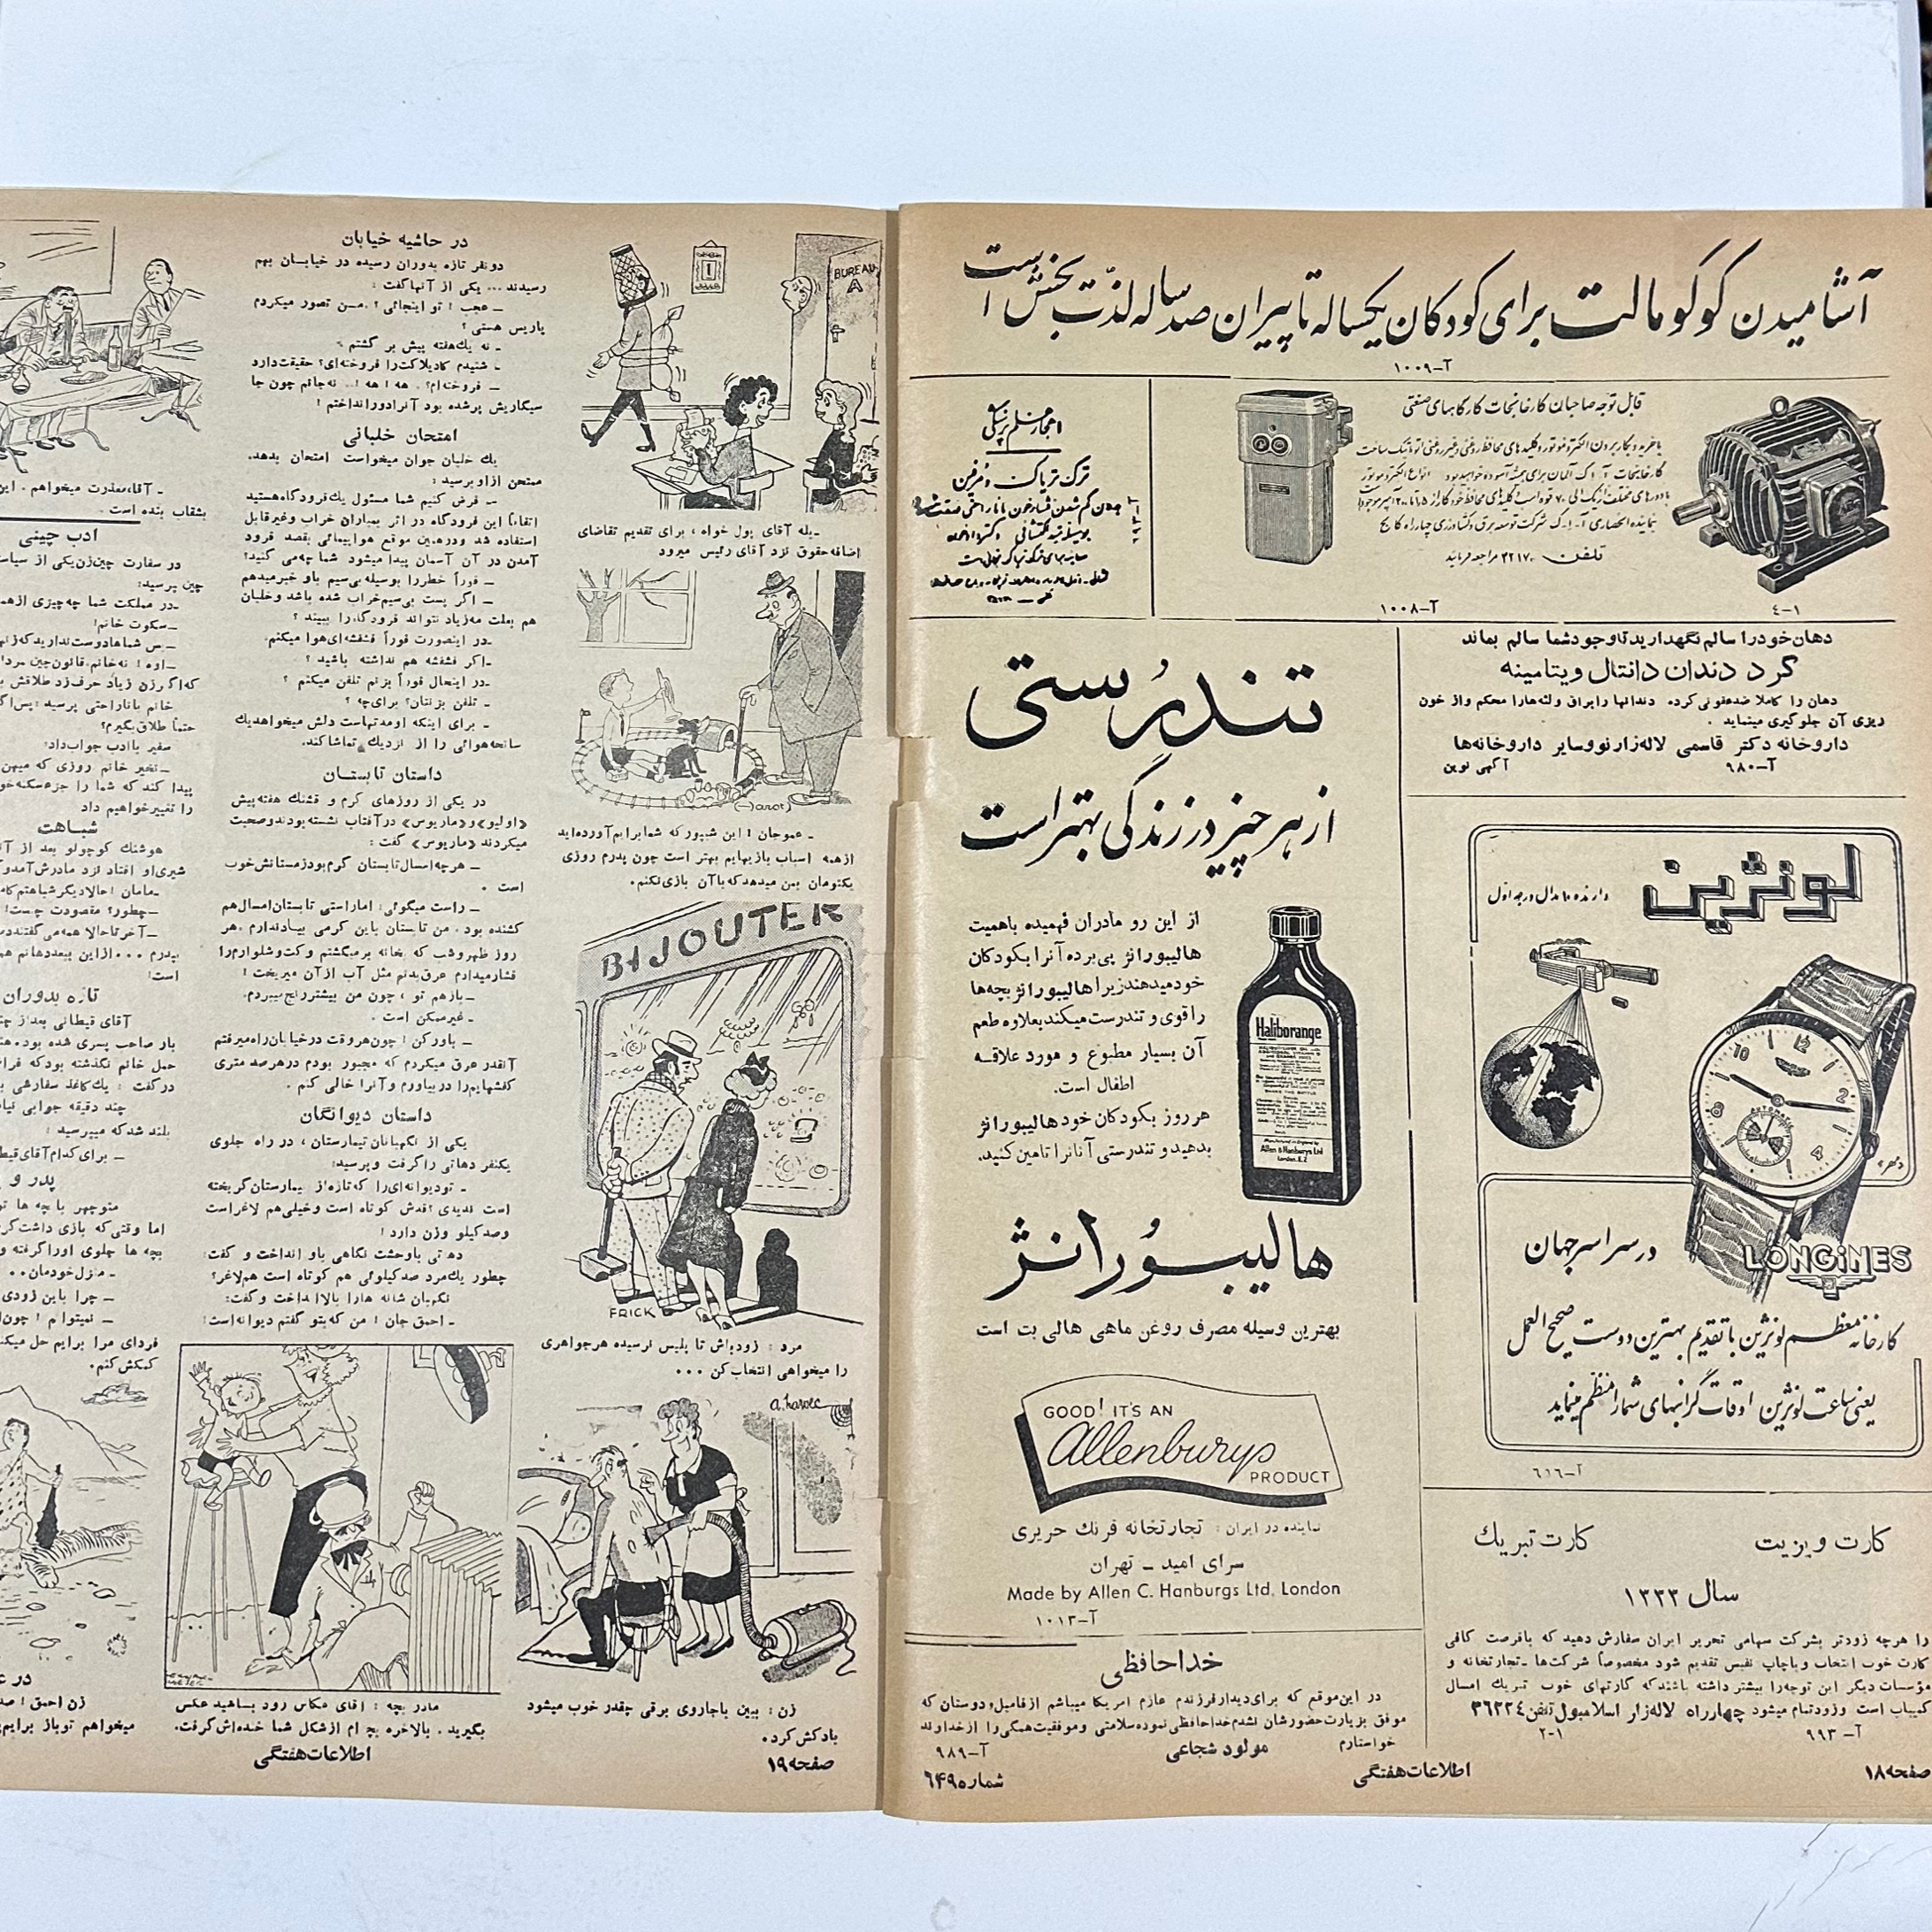 آشامیدن کوکومالت برای کودکان یکساله تا پیران صد ساله لذت بخش است
آ-۱۰۰۹
قابل توجه صاحبان کارخانجات کارگاههای صنعتی
تلفن ۳۲۱۷۰ مراجعه فرمائید
آ-۱۰۰۸
۴-۱
ترک تریاک و مرفین
دهان خود را سالم نگهدارید تا وجود شما سالم بماند
گرد دندان دانتال ویتامینه
دهان را کاملا ضدعفونی کرده، دندانها را براق و لثه‌ها را محکم و از خون
ریزی آن جلوگیری مینماید .
داروخانه دکتر قاسمی لاله‌زار نو و سایر داروخانه‌ها
آ-۹۸۰
آگهی نوین
لونژین
دارنده ۱۰ مدال درجه اول
12
2
4
8
10
AUTOMATIC
در سراسر جهان
LONGINES
کارخانه معظم لونژین با تقدیم بهترین دوست صحیح العمل
یعنی ساعت لونژین اوقات گرانبهای شما را منظم مینماید
آ-۶۱۶
کارت ویزیت
کارت تبریک
سال ۱۳۳۳
را هرچه زودتر بشرکت سهامی تحریر ایران سفارش دهید که بافرصت کافی
کارت خوب انتخاب و باچاپ نفیس تقدیم شود مخصوصاً شرکت‌ها ـ تجارتخانه و
مؤسسات دیگر این توجه را بیشتر داشته باشند که کارتهای خوب تبریک امسال
کمیاب است و زود تمام میشود چهارراه لاله‌زار اسلامبول تلفن ۳۶۲۳۴
آ-۹۹۳
۲-۱
تندرستی
از هر چیز در زندگی بهتر است
از این رو مادران فهمیده باهمیت
هالیبورانژ پی برده آنرا بکودکان
خود میدهند زیرا هالیبورانژ بچه‌ها
را قوی و تندرست میکند بعلاوه طعم
آن بسیار مطبوع و مورد علاقه
اطفال است.
هر روز بکودکان خود هالیبورانژ
بدهید و تندرستی آنانرا تامین کنید.
Haliborange
Allen & Hanburys Ltd
London. E.2
هالیبورانژ
بهترین وسیله مصرف روغن ماهی هالی بت است
GOOD! IT'S AN
Allenburys
PRODUCT
نماینده در ایران : تجارتخانه فرنک حریری
سرای امید ـ تهران
Made by Allen C. Hanburgs Ltd. London
آ-۱۰۱۳
خداحافظی
در این موقع که برای دیدار فرزندم عازم امریکا میباشم از فامیل و دوستان که
موفق بزیارت حضورشان نشدم خداحافظی نموده سلامتی و موفقیت همگی را از خداوند
خواستارم
مولود شجاعی
آ-۹۸۹
صفحه ۱۸
اطلاعات هفتگی
شماره ۶۴۹
BUREAU
A
1
ـ بله آقای پول خواه ، برای تقدیم تقاضای
اضافه حقوق نزد آقای رئیس میرود
ـ عموجان ! این شیپور که شما برایم آورده‌اید
از همه اسباب بازیهایم بهتر است چون پدرم روزی
یکتومان بمن میدهد که با آن بازی نکنم.
BIJOUTER
FRICK
مرد : زودباش تا پلیس نرسیده هر جواهری
را میخواهی انتخاب کن ...
زن : ببین باجاروی برقی چقدر خوب میشود
بادکش کرد.
صفحه ۱۹
در حاشیه خیابان
دونفر تازه بدوران رسیده در خیابان بهم
رسیدند ... یکی از آنها گفت :
ـ عجب ! تو اینجائی ؟ .من تصور میکردم
پاریس هستی ؟
ـ نه یک‌هفته پیش بر گشتم .
ـ شنیدم کادیلاکت را فروخته‌ای؟ حقیقت دارد
ـ فروخته‌ام؟ . هه ! هه !.. نه جانم چون جا
سیگاریش پر شده بود آنرا دور انداختم !
امتحان خلبانی
یک خلبان جوان میخواست امتحان بدهد.
ممتحن از او پرسید :
ـ فرض کنیم شما مسئول یک فرودگاه هستید
اتفاقاً این فرودگاه در اثر بمباران خراب و غیرقابل
استفاده شد و درهمین موقع هواپیمائی بقصد فرود
آمدن در آن آسمان پیدا میشود شما چه می کنید؟
ـ فوراً خطر را بوسیله بی‌سیم باو خبر میدهم
ـ اگر پست بی‌سیم خراب شده باشد و خلبان
هم بعلت مه زیاد نتواند فرودگاه را ببیند ؟
ـ در اینصورت فوراً فشفشه‌ای هوا میکنم.
ـ اگر فشفشه هم نداشته باشید ؟
ـ در اینحال فوراً بزنم تلفن میکنم ؟
ـ تلفن بزنتان؟ برای چه ؟
ـ برای اینکه او مدتهاست دلش میخواهد یک
سانحه هوائی را از نزدیک تماشا کند.
داستان تابستان
در یکی از روزهای گرم و قشنک هفته پیش
«اولیو» و «ماریوس» در آفتاب نشسته بودند و صحبت
میکردند «ماریوس» گفت :
ـ هرچه امسال تابستان گرم بود زمستانش خوب
است .
ـ راست میگوئی! اما راستی تابستان امسال هم
کشنده بود . من تابستان باین گرمی بیاد ندارم . هر
روز ظهر و شب که بخانه برمیگشتم و کت و شلوارم را
فشار میدادم عرق بدنم مثل آب از آن میریخت !
ـ باز هم تو ، چون من بیشتر رنج میبردم.
ـ غیرممکن است .
ـ باور کن ! چون هر وقت در خیابان راه میرفتم
آنقدر عرق میکردم که مجبور بودم در هر صد متری
کفشهایم را در بیاورم و آنرا خالی کنم .
داستان دیوانگان
یکی از نگهبانان تیمارستان ، در راه جلوی
یکنفر دهاتی را گرفت و پرسید:
ـ تو دیوانه‌ای را که تازه از تیمارستان گریخته
است ندیدی ؟ قدش کوتاه است و خیلی هم لاغر است
و صد کیلو وزن دارد !
دهاتی باوحشت نگاهی باو انداخت و گفت:
چطور یک مرد صد کیلوئی هم کوتاه است هم لاغر؟
نگهبان شانه ها را بالا انداخت و گفت:
ـ احمق جان ! من که بتو گفتم دیوانه است!
مادر بچه : آقای عکاس زود بسائید عکس
بگیرید . بالاخره بچه ام از شکل شما خنده‌اش گرفت.
اطلاعات هفتگی
ـ آقا معذرت میخواهم . این
بشقاب بنده است .
ادب چینی
در سفارت چین زن یکی از سیاس
چین پرسید:
ـ در مملکت شما چه چیزی از همه
ـ سکوت خانم!
ـ اوه ! نه خانم. قانون چین
که اگر زن زیاد حرف زد طلاقش
خانم با ناراحتی پرسید : پس اگر
حتماً طلاق بگیرم؟
سفیر با ادب جواب داد:
ـ نخیر خانم روزی که میهن
پیدا کند که شما را جزء سکنه خو
را تغییر خواهیم داد
شباهت
هوشنک کوچولو بعد از آن
شیری او افتاد نزد مادرش آمد و
ـ مامان ! حالا دیگر شباهتم کا
ـ چطور؟ مقصودت چیست!
ـ آخر تا حالا همه می گفتند
بپدرم ... از این ببعد دهانم هم
است!
تازه بدوران
آقای قیطانی بعد از چند
بار صاحب پسری شده بود.
حمل خانم نگذشته بود که فرا
در گفت : یک کاغذ سفارشی
چند دقیقه جوابی نیا
بلند شد که میپرسید :
ـ برای کدام آقای قیط
پدر و
منوچهر با بچه ها تو
اما وقتی که بازی داشت گر
بچه ها جلوی او را گرفته و
ـ منزل خودمان..
ـ چرا باین زودی
ـ نمیتوانم ! چون
فردای مرا برایم حل میکند
کمکش کنم.
زن احمق !
میخواهم تو باز برایم